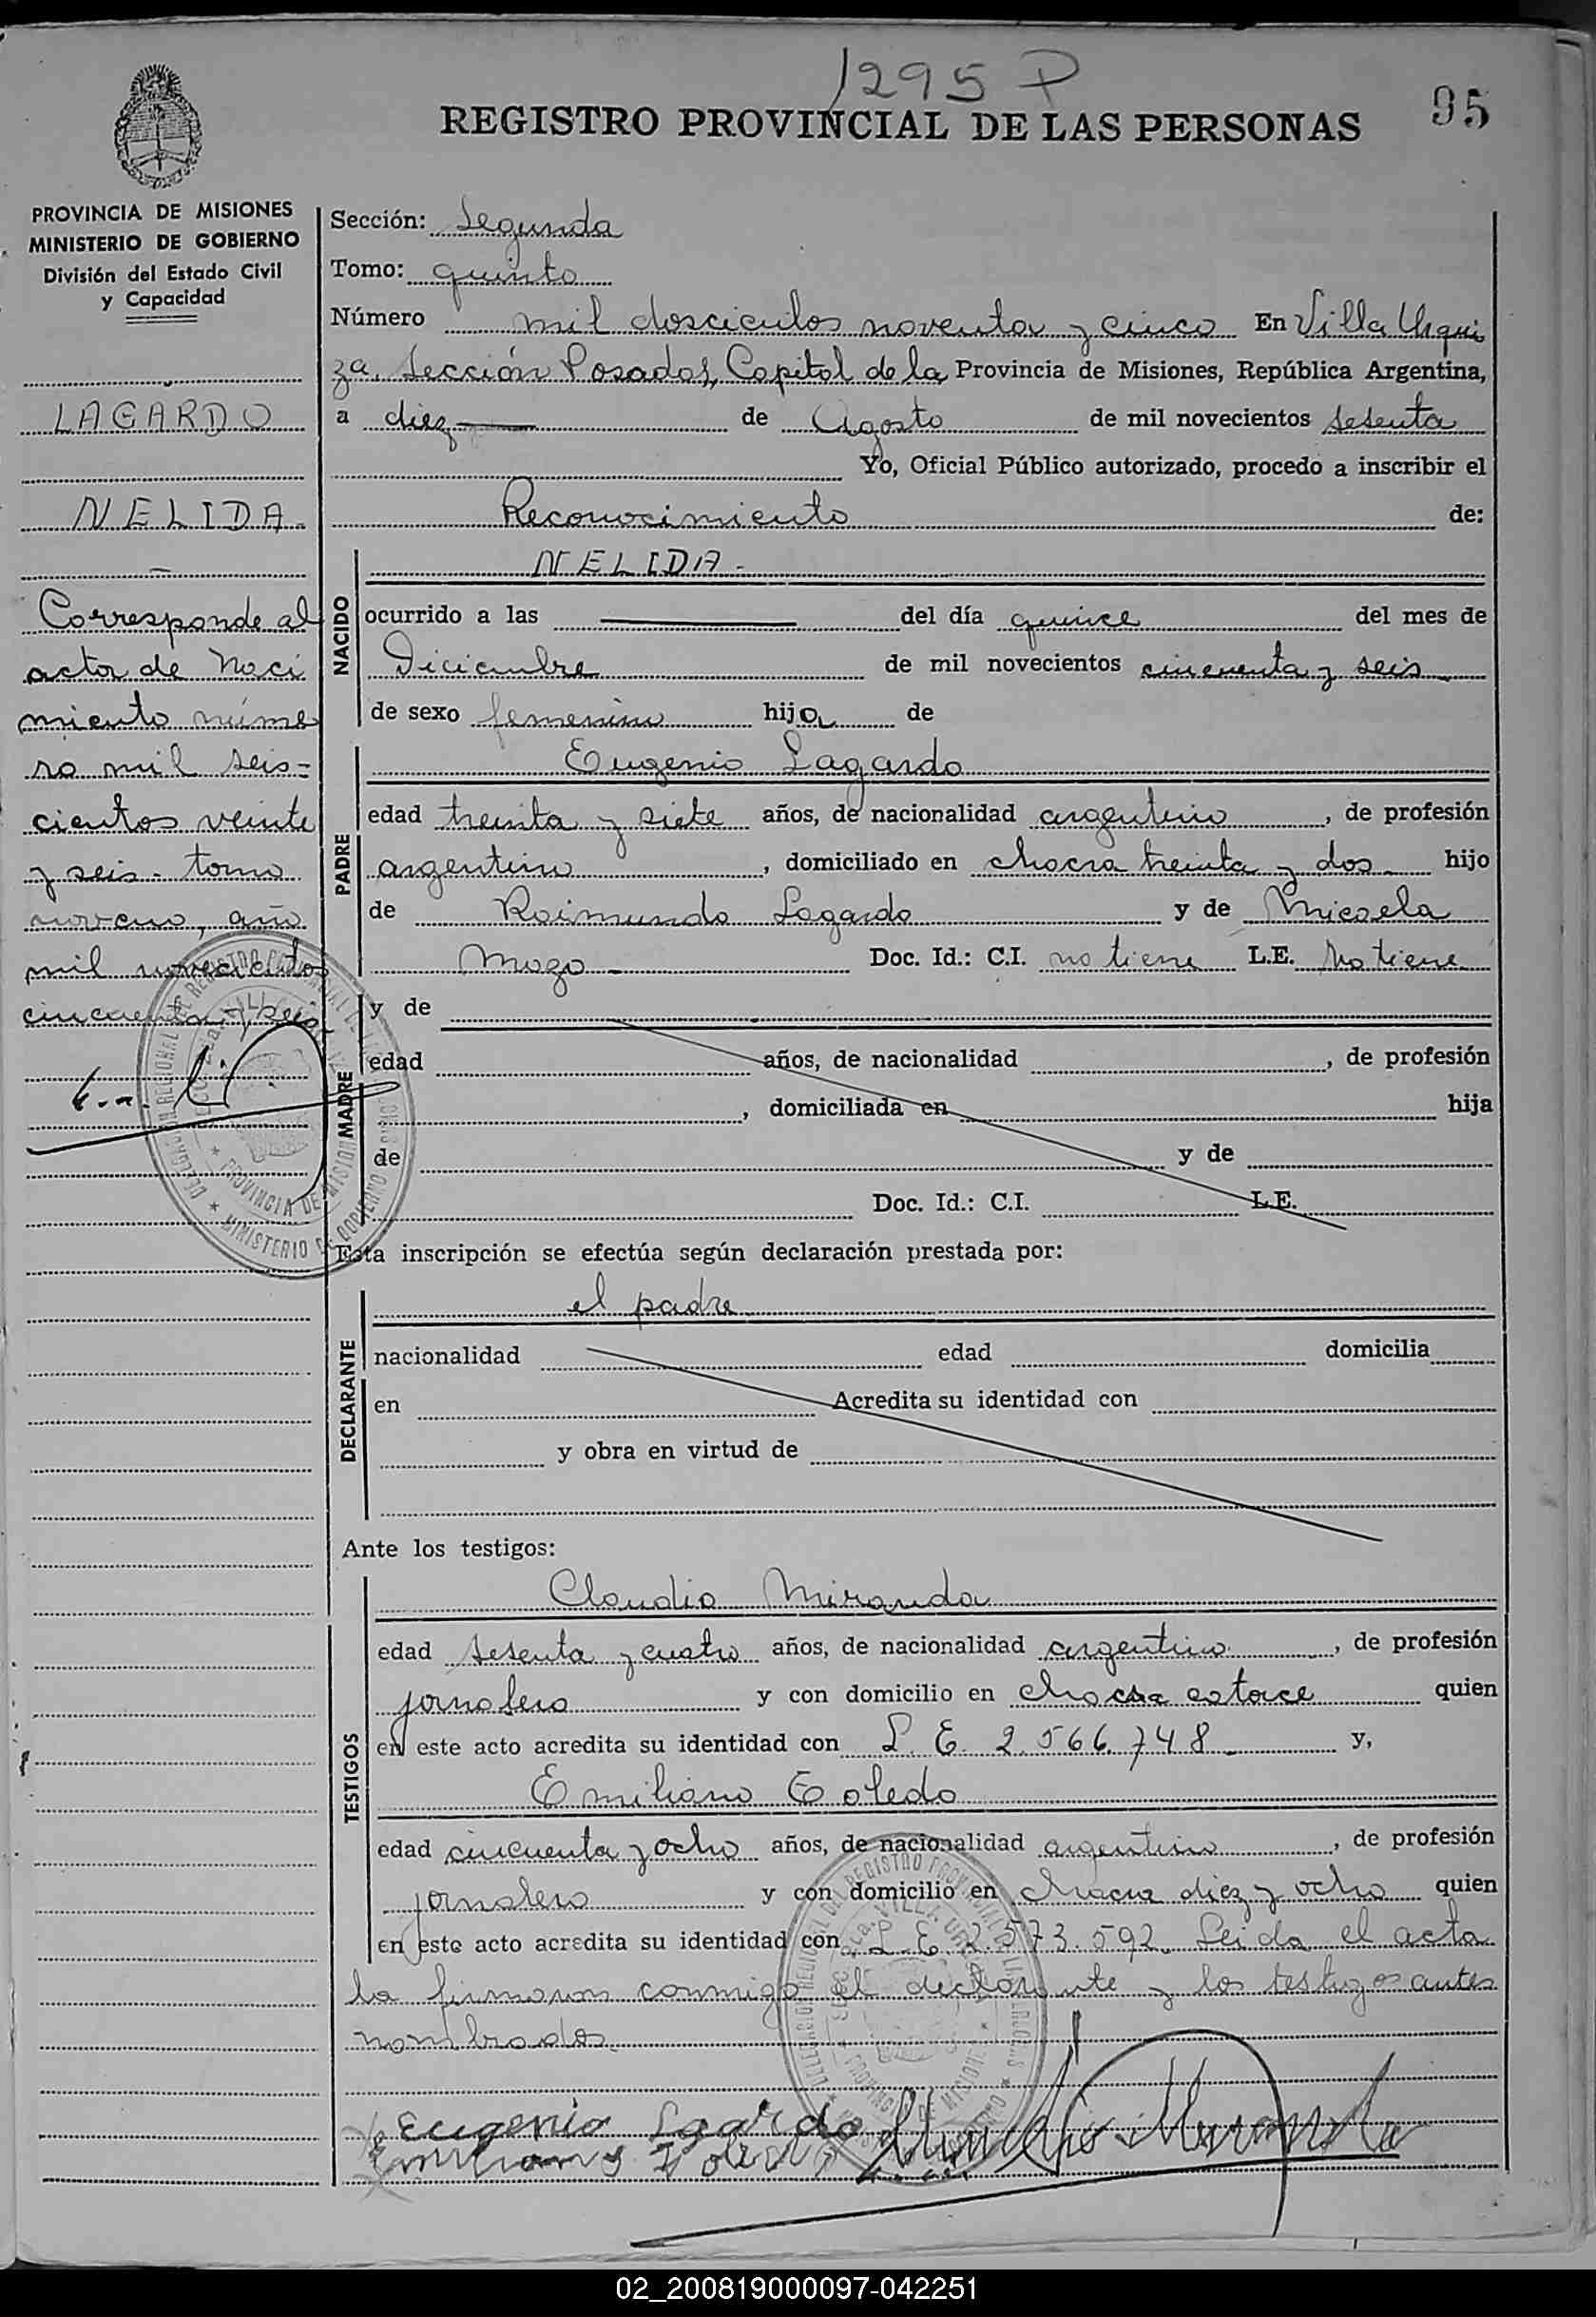 1295 P
REGISTRO PROVINCIAL DE LAS PERSONAS
95
PROVINCIA DE MISIONES
MINISTERIO DE GOBIERNO
División del Estado Civil
y Capacidad
LAGARDO
NELIDA.
Corresponde al
acta de Naci
miento núme
ro mil seis-
cientos veinte
y seis. tomo
noveno, año
mil novecientos
cincuenta y seis
Sección: Segunda
Tomo: quinto
Número mil doscientos noventa y cinco En Villa Urqui
za, Sección Posadas, Capital de la Provincia de Misiones, República Argentina,
a diez de Agosto de mil novecientos sesenta
Yo, Oficial Público autorizado, procedo a inscribir el
Reconocimiento de:
NACIDO
NELIDA.-
ocurrido a las del día quince del mes de
Diciembre de mil novecientos cincuenta y seis
de sexo femenino hija de
PADRE
Eugenio Lagardo
edad treinta y siete años, de nacionalidad argentino, de profesión
argentino, domiciliado en chacra treinta y dos hijo
de Raimundo Lagardo y de Micaela
Mozo - Doc. Id.: C.I. no tiene L.E. No tiene
MADRE
y de
edad años, de nacionalidad , de profesión
, domiciliada en hija
de y de
Doc. Id.: C.I. L.E.
Esta inscripción se efectúa según declaración prestada por:
DECLARANTE
el padre
nacionalidad edad domicilia
en Acredita su identidad con
y obra en virtud de
Ante los testigos:
TESTIGOS
Claudio Miranda
edad sesenta y cuatro años, de nacionalidad argentino, de profesión
jornalero y con domicilio en chacra catorce quien
en este acto acredita su identidad con L. E. 2.566.748 y,
Emiliano Toledo
edad cincuenta y ocho años, de nacionalidad argentino, de profesión
jornalero y con domicilio en chacra diez y ocho quien
en este acto acredita su identidad con L.E. 2.573.592. Leida el acta
la firmaron conmigo el declarante y los testigos antes
nombrados.
Eugenio Lgardo
02_200819000097-042251